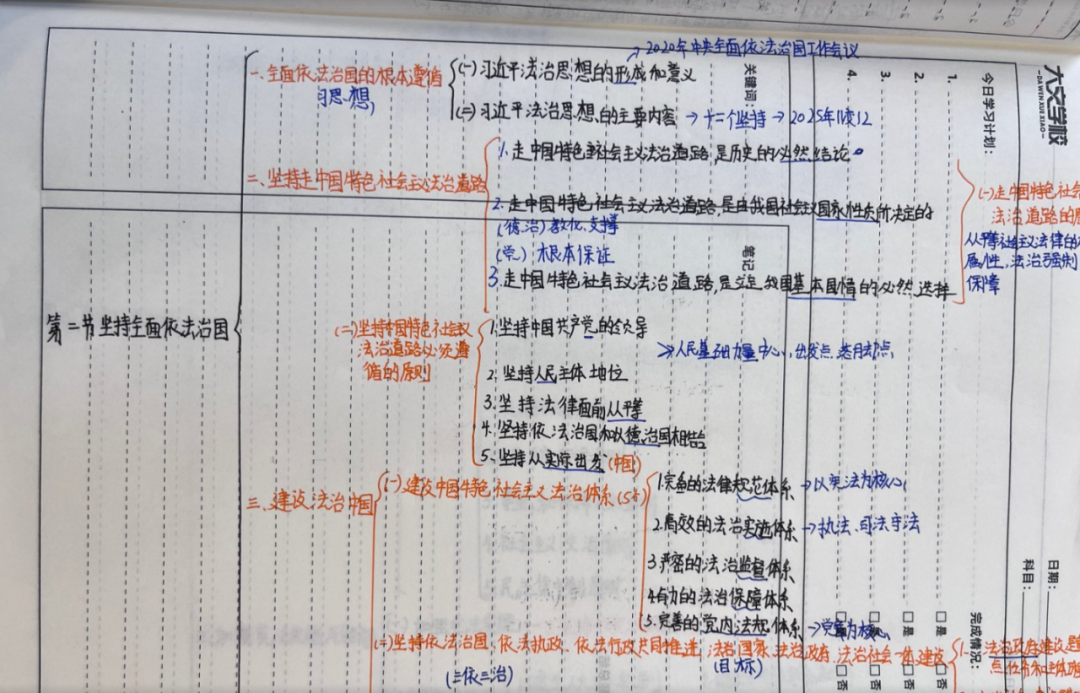 2020年中央全面依法治国工作会议
一、全面依法治国的根本遵循
习思想,
(一)习近平法治思想的形成和意义
(二)习近平法治思想的主要内容 → 十二个坚持 → 2025年11月12
二、坚持走中国特色社会主义法治道路
1.走中国特色社会主义法治道路,是历史的必然结论。
2.走中国特色社会主义法治道路,是由我国社会主义国家性质所决定的
(德治)教化、支撑
(党)根本保证
3.走中国特色社会主义法治道路,是立足我国基本国情的必然选择
(一)走中国特色社会
法治道路的
属性,法治强制
保障
第二节坚持全面依法治国
(二)坚持中国特色社会主义
法治道路必须遵
循的原则
1.坚持中国共产党的领导
→人民基础力量中心,出发点
2.坚持人民主体地位
3.坚持法律面前人平等
4.坚持依法治国和以德治国相结合
5.坚持从实际出发(中国)
三、建设法治中国
(一)建设中国特色社会主义法治体系(5个)
1.完备的法律规范体系→以宪法为核心
2.高效的法治实施体系→执法、司法守法
3.严密的法治监督体系
4.有力的法治保障体系
5.完善的党内法规体系→党章为核心
(二)坚持依法治国、依法执政、依法行政共同推进,法治国家、法治政府、法治社会一体建设
(三依三治)
(目标)
(一)法治政府建设是
点任务和主体
大文学校
—DAWENXUEXIAO—
今日学习计划:
1.
2.
3.
4.
关键词:
笔记
日期:
科目:
完成情况:
□是 □否
□是 □否
□是 □否
□是 □否